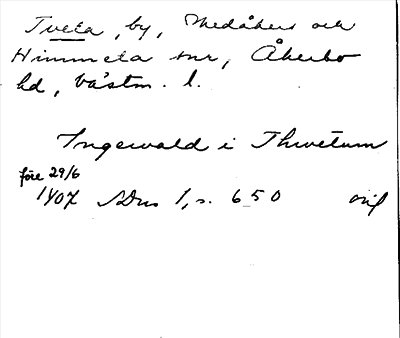 Tveta, by, Medåkers och
Himmeta snr, Åkerbo
hd, Västm. l.
Ingewald i Thwetum
före 29/6
1407 SDns 1, s. 650 orig